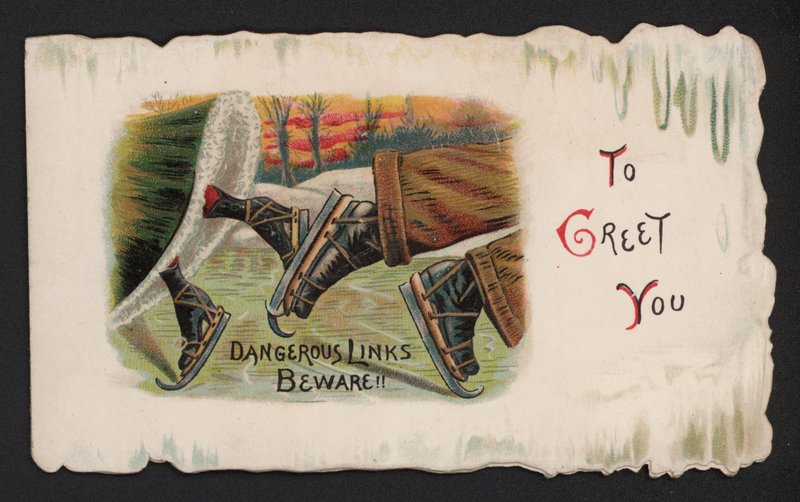 DANGEROUS LINKS
BEWARE!!
TO
GREET
YOU